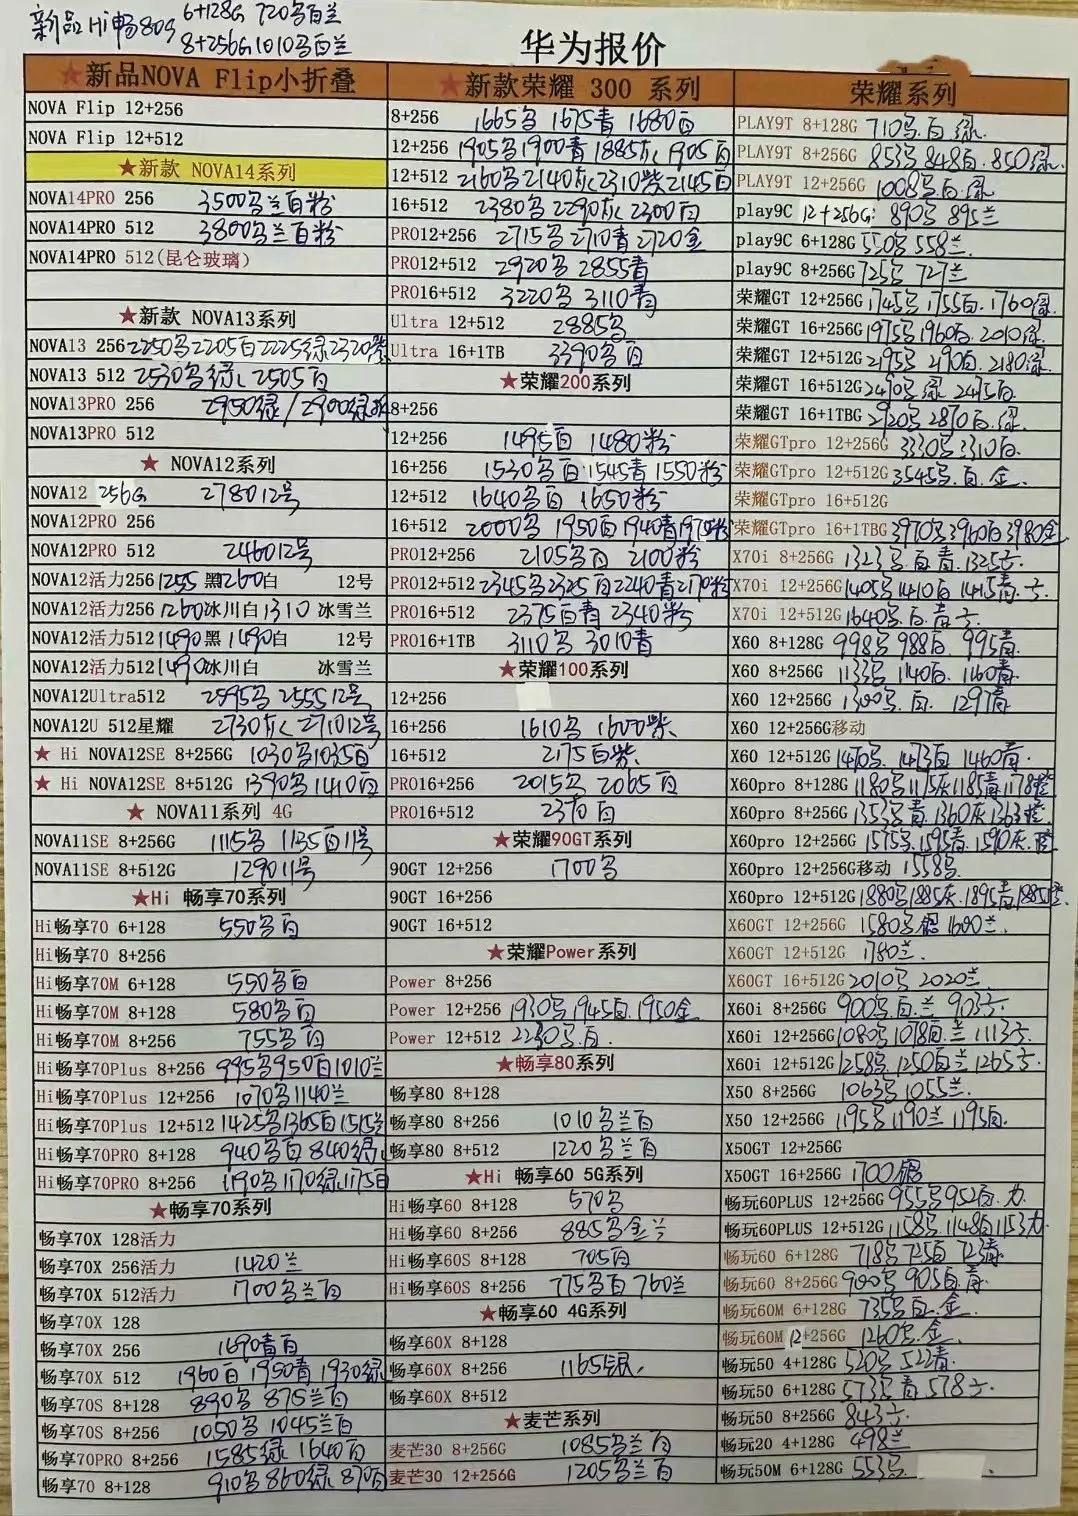 新品Hi畅80S 6+128G 720鸟百兰
8+256G 1010鸟百兰
华为报价
★新品NOVA Flip小折叠
NOVA Flip 12+256
NOVA Flip 12+512
★新款 NOVA14系列
NOVA14PRO 256 3500鸟兰百粉
NOVA14PRO 512 3800鸟兰百粉
NOVA14PRO 512(昆仑玻璃)
★新款 NOVA13系列
NOVA13 256 2250鸟2205百2225绿2320紫
NOVA13 512 2530鸟绿 2505百
NOVA13PRO 256 2950绿/2900绿
NOVA13PRO 512
★ NOVA12系列
NOVA12 256G 2780 12号
NOVA12PRO 256
NOVA12PRO 512 2460 12号
NOVA12活力256 1255黑1260白 12号
NOVA12活力256 1260冰川白1310 冰雪兰
NOVA12活力512 1490黑1490白 12号
NOVA12活力512 1490冰川白 冰雪兰
NOVA12Ultra512 2595鸟 2555 12号
NOVA12U 512星耀 2730灰 2710 12号
★ Hi NOVA12SE 8+256G 1030鸟1035百
★ Hi NOVA12SE 8+512G 1390鸟1410百
★ NOVA11系列 4G
NOVA11SE 8+256G 1115鸟 1135百11号
NOVA11SE 8+512G 1290 11号
★Hi 畅享70系列
Hi畅享70 6+128 550鸟百
Hi畅享70 8+256
Hi畅享70M 6+128 550鸟百
Hi畅享70M 8+128 580鸟百
Hi畅享70M 8+256 755鸟百
Hi畅享70Plus 8+256 995鸟950百1010兰
Hi畅享70Plus 12+256 1070鸟1140兰
Hi畅享70Plus 12+512 1425鸟1365百1515兰
Hi畅享70PRO 8+128 940鸟百840绿
Hi畅享70PRO 8+256 1190鸟1170绿1175百
★畅享70系列
畅享70X 128活力
畅享70X 256活力 1420兰
畅享70X 512活力 1700鸟兰百
畅享70X 128
畅享70X 256 1690青百
畅享70X 512 1960百 1950青 1930绿
畅享70S 8+128 890鸟 875兰百
畅享70S 8+256 1050鸟 1045兰百
畅享70PRO 8+256 1585绿 1640百
畅享70 8+128 910鸟860绿 870百
★新款荣耀 300 系列
8+256 1665鸟 1675青 1680百
12+256 1905鸟1900青1885灰1905百
12+512 2160鸟2140灰2310紫2145百
16+512 2380鸟2290灰 2300百
PRO12+256 2715鸟2710青2720金
PRO12+512 2920鸟 2855青
PRO16+512 3220鸟 3110青
Ultra 12+512 2885鸟
Ultra 16+1TB 3390鸟百
★荣耀200系列
8+256
12+256 1495百 1480粉
16+256 1530鸟百1545青1550粉
12+512 1640鸟百 1650粉
16+512 2000鸟 1950百1940青1970粉
PRO12+256 2105鸟百 2100粉
PRO12+512 2345鸟2325百2240青2170粉
PRO16+512 2375百青 2340粉
PRO16+1TB 3110鸟 3010青
★荣耀100系列
12+256
16+256 1610鸟 1600紫
16+512 2175百紫
PRO16+256 2015鸟 2065百
PRO16+512 2370百
★荣耀90GT系列
90GT 12+256 1700鸟
90GT 16+256
90GT 16+512
★荣耀Power系列
Power 8+256
Power 12+256 1930鸟1945百1950金
Power 12+512 2230鸟百
★畅享80系列
畅享80 8+128
畅享80 8+256 1010鸟兰百
畅享80 8+512 1220鸟兰百
★Hi 畅享60 5G系列
Hi畅享60 8+128 570鸟
Hi畅享60 8+256 885鸟金兰
Hi畅享60S 8+128 705百
Hi畅享60S 8+256 775鸟百760兰
★畅享60 4G系列
畅享60X 8+128
畅享60X 8+256 1165银
畅享60X 8+512
★麦芒系列
麦芒30 8+256G 1085鸟兰百
麦芒30 12+256G 1205鸟兰百
荣耀系列
PLAY9T 8+128G 710鸟百绿
PLAY9T 8+256G 853鸟848百.850绿
PLAY9T 12+256G 1008鸟百绿
play9C 12+256G: 890鸟 895兰
play9C 6+128G 550鸟 558兰
play9C 8+256G 725鸟 727兰
荣耀GT 12+256G 1745鸟1755百.1760绿
荣耀GT 16+256G 1975鸟1960百.2010绿
荣耀GT 12+512G 2195鸟2190百2180绿
荣耀GT 16+512G 2490鸟绿 2495百
荣耀GT 16+1TBG 2920鸟2870百.绿
荣耀GTpro 12+256G 3330鸟3310百
荣耀GTpro 12+512G 3545鸟.百.金
荣耀GTpro 16+512G
荣耀GTpro 16+1TBG 3970鸟3960百3980金
X70i 8+256G 1323鸟百青.1325
X70i 12+256G 1405鸟1410百1415青
X70i 12+512G 1640鸟.百.青
X60 8+128G 998鸟 988百.995青
X60 8+256G 1133鸟1140百.1160青
X60 12+256G 1300鸟.百.1297青
X60 12+256G移动
X60 12+512G 1470鸟.1473百1460青
X60pro 8+128G 1180鸟1175灰1185青1178橙
X60pro 8+256G 1353鸟青.1360灰1363橙
X60pro 12+256G 1575鸟.1595青.1590灰.橙
X60pro 12+256G移动 1558鸟
X60pro 12+512G 1880鸟1885灰.1895青1885橙
X60GT 12+256G 1580鸟银1600兰
X60GT 12+512G 1780兰
X60GT 16+512G 2010鸟2020兰
X60i 8+256G 900鸟.百.兰 903
X60i 12+256G 1080鸟1078百.兰1113
X60i 12+512G 1258鸟1250百兰1265
X50 8+256G 1063鸟1055兰
X50 12+256G 1195鸟1190兰1195百
X50GT 12+256G
X50GT 16+256G 1700银
畅玩60PLUS 12+256G 955鸟952百.
畅玩60PLUS 12+512G 1158鸟.1148百1153
畅玩60 6+128G 718鸟725百723青
畅玩60 8+256G 900鸟905百.青
畅玩60M 6+128G 735鸟百.金
畅玩60M 12+256G 1260鸟.金
畅玩50 4+128G 520鸟522青
畅玩50 6+128G 573鸟青578
畅玩50 8+256G 843
畅玩20 4+128G 498兰
畅玩50M 6+128G 553鸟